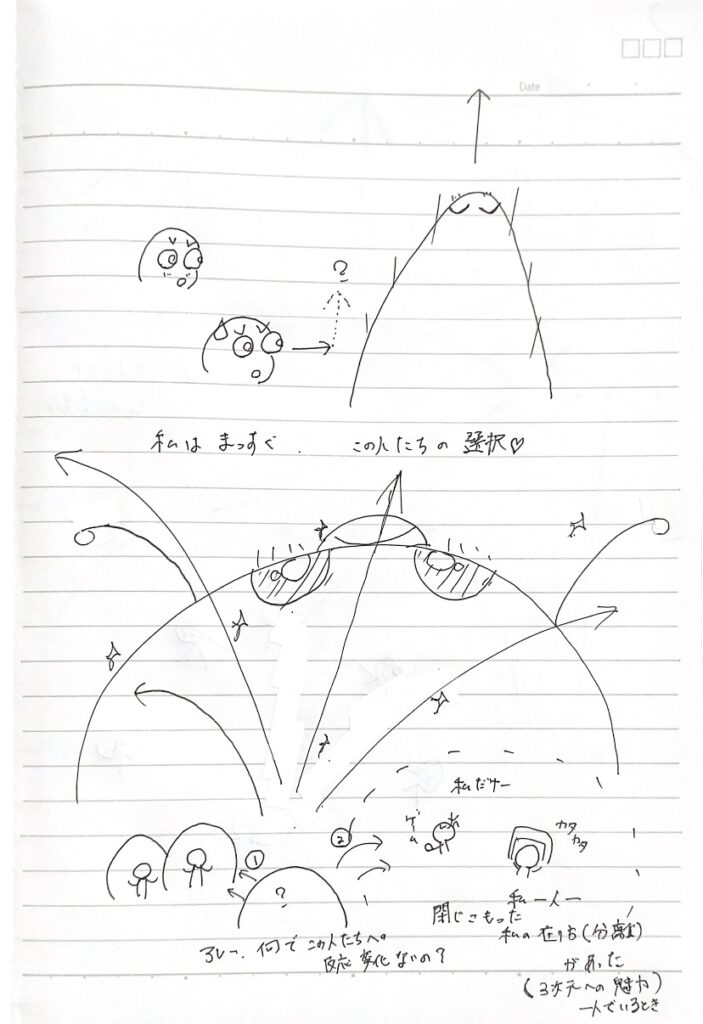 Date
?
私は まっすぐ. この人たちの 選択♡
私だけー
ゲーム
カタ
カタ
①
②
?
私 一人 ー
閉じこもった
私の 在り方 (分離)
があった
(3次元への 魅力)
一人でいるとき
アレー、何で この人たちへ。
反応 変化 ないの?